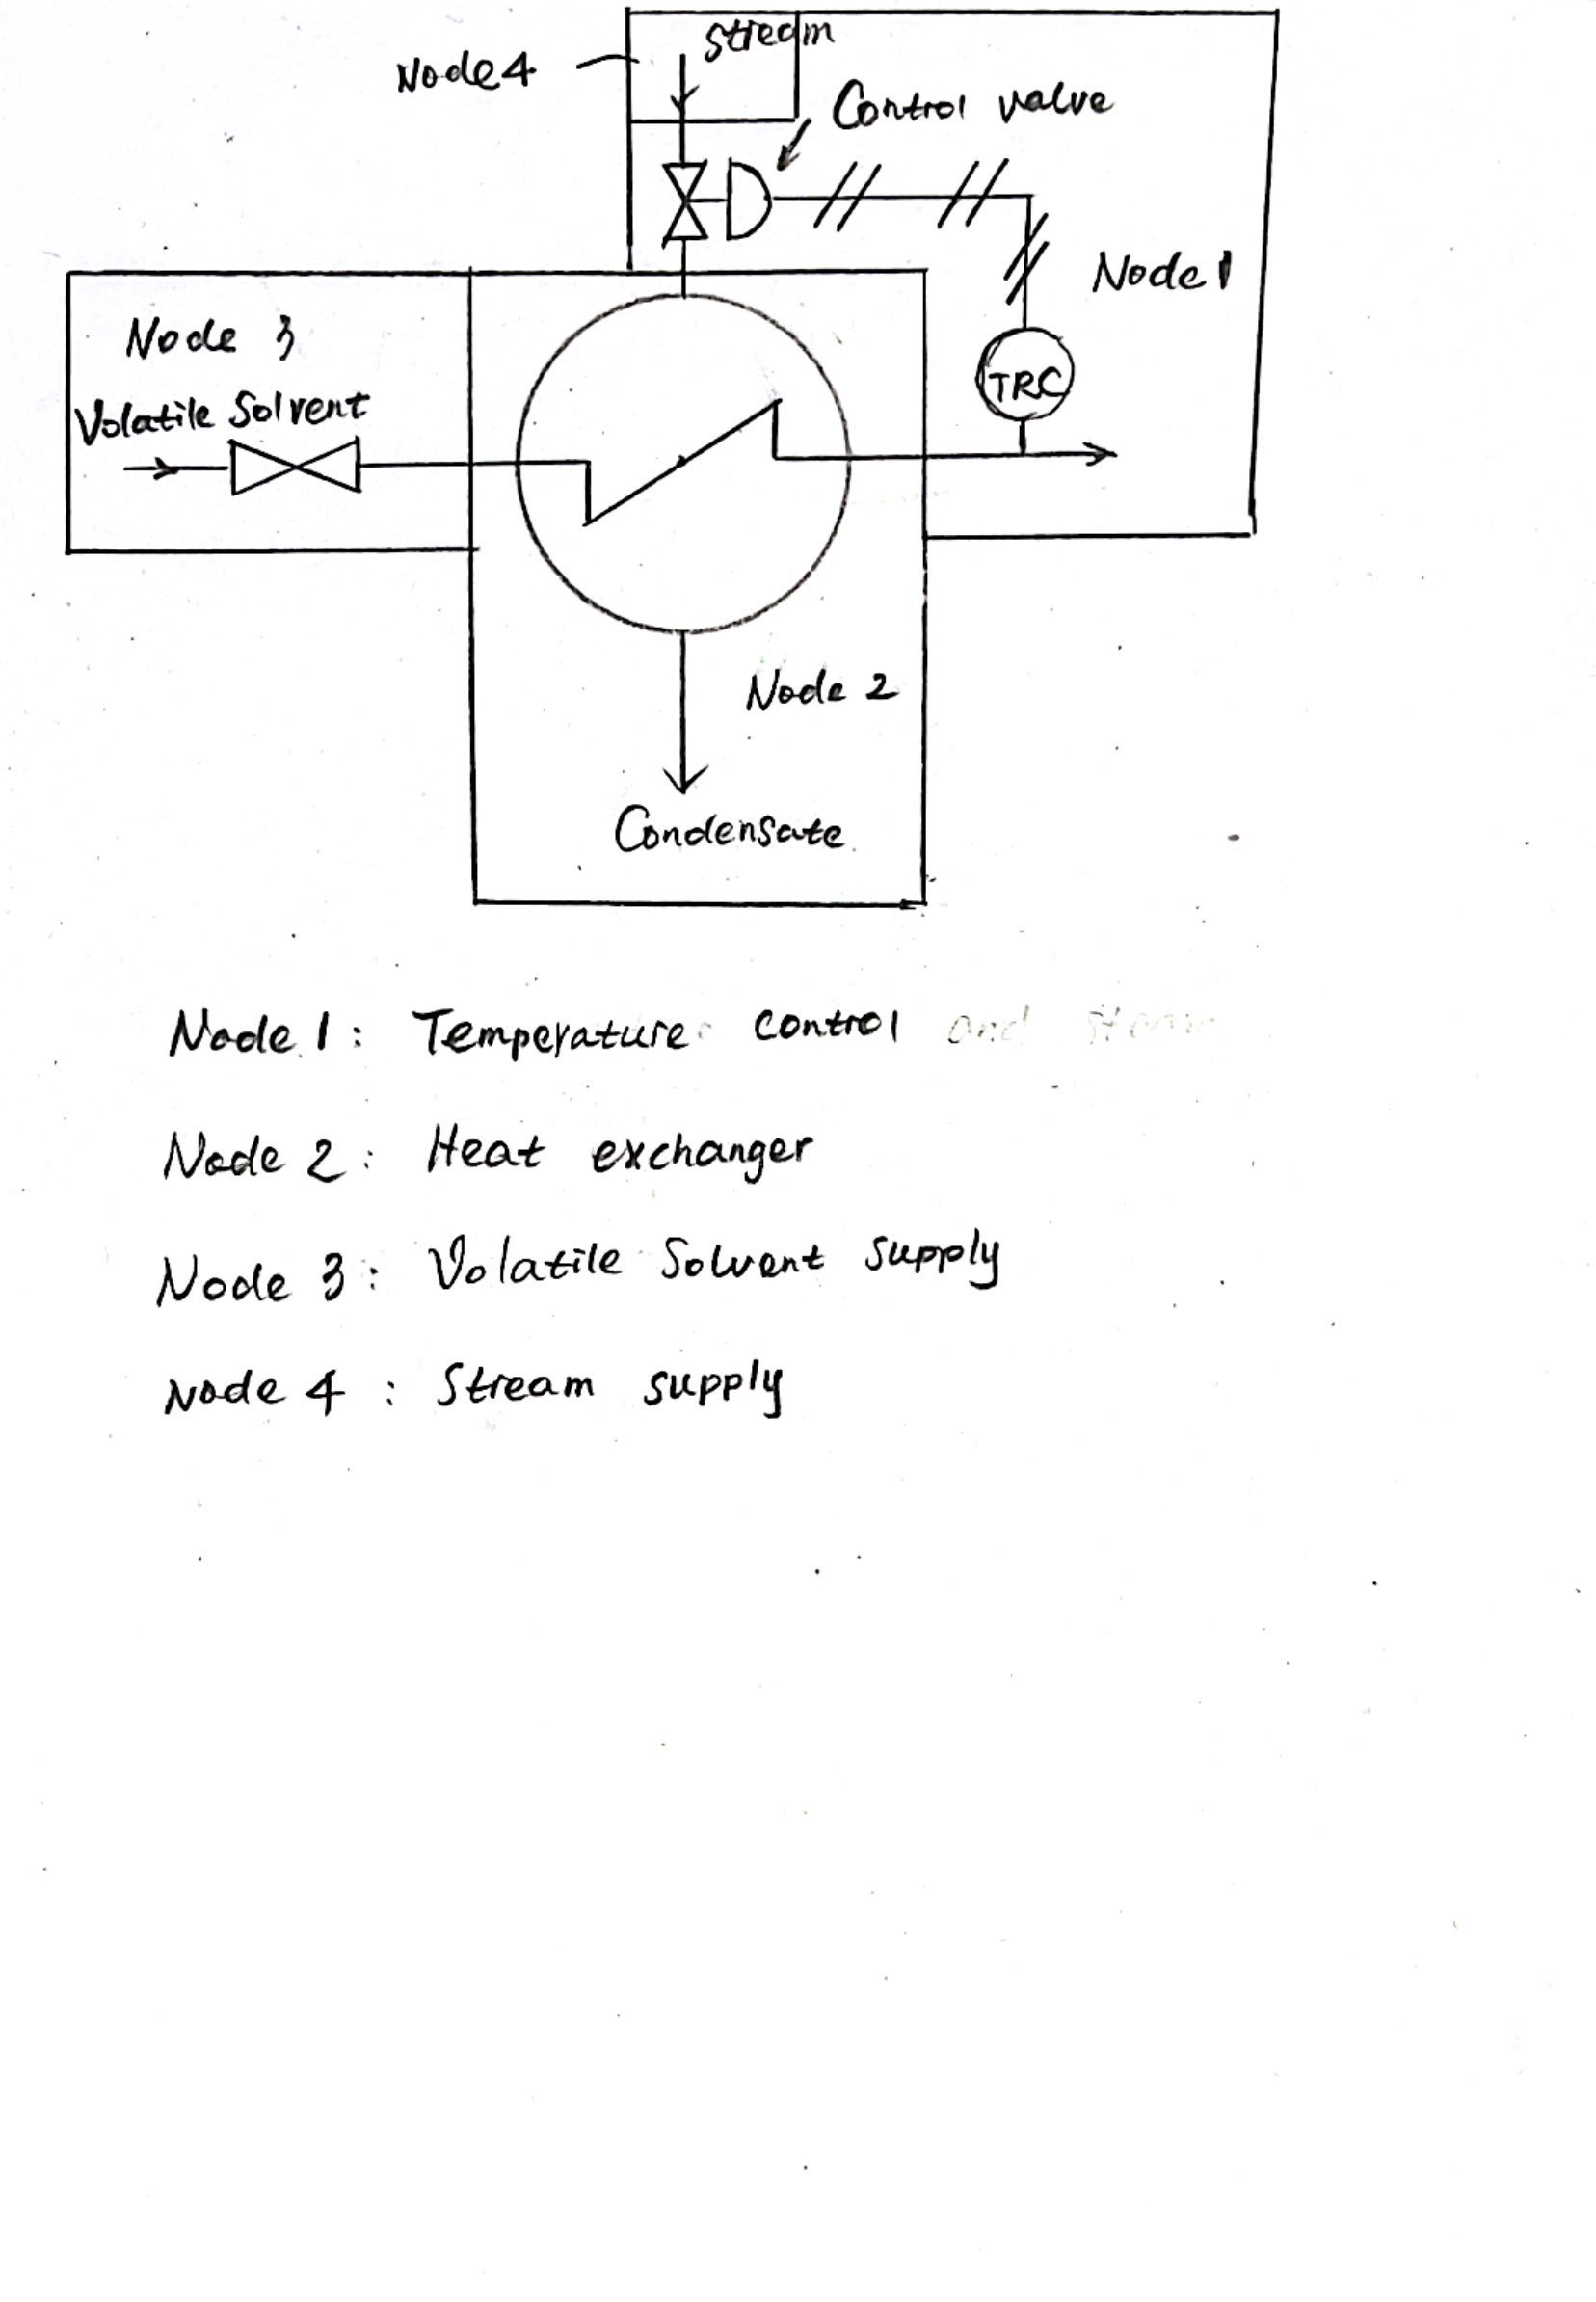 stream
Node 4
Control valve
Node 1
Node 3
Volatile Solvent
TRC
Node 2
Condensate
Node 1: Temperature control and
Node 2: Heat exchanger
Node 3: Volatile Solvent supply
Node 4: Stream supply